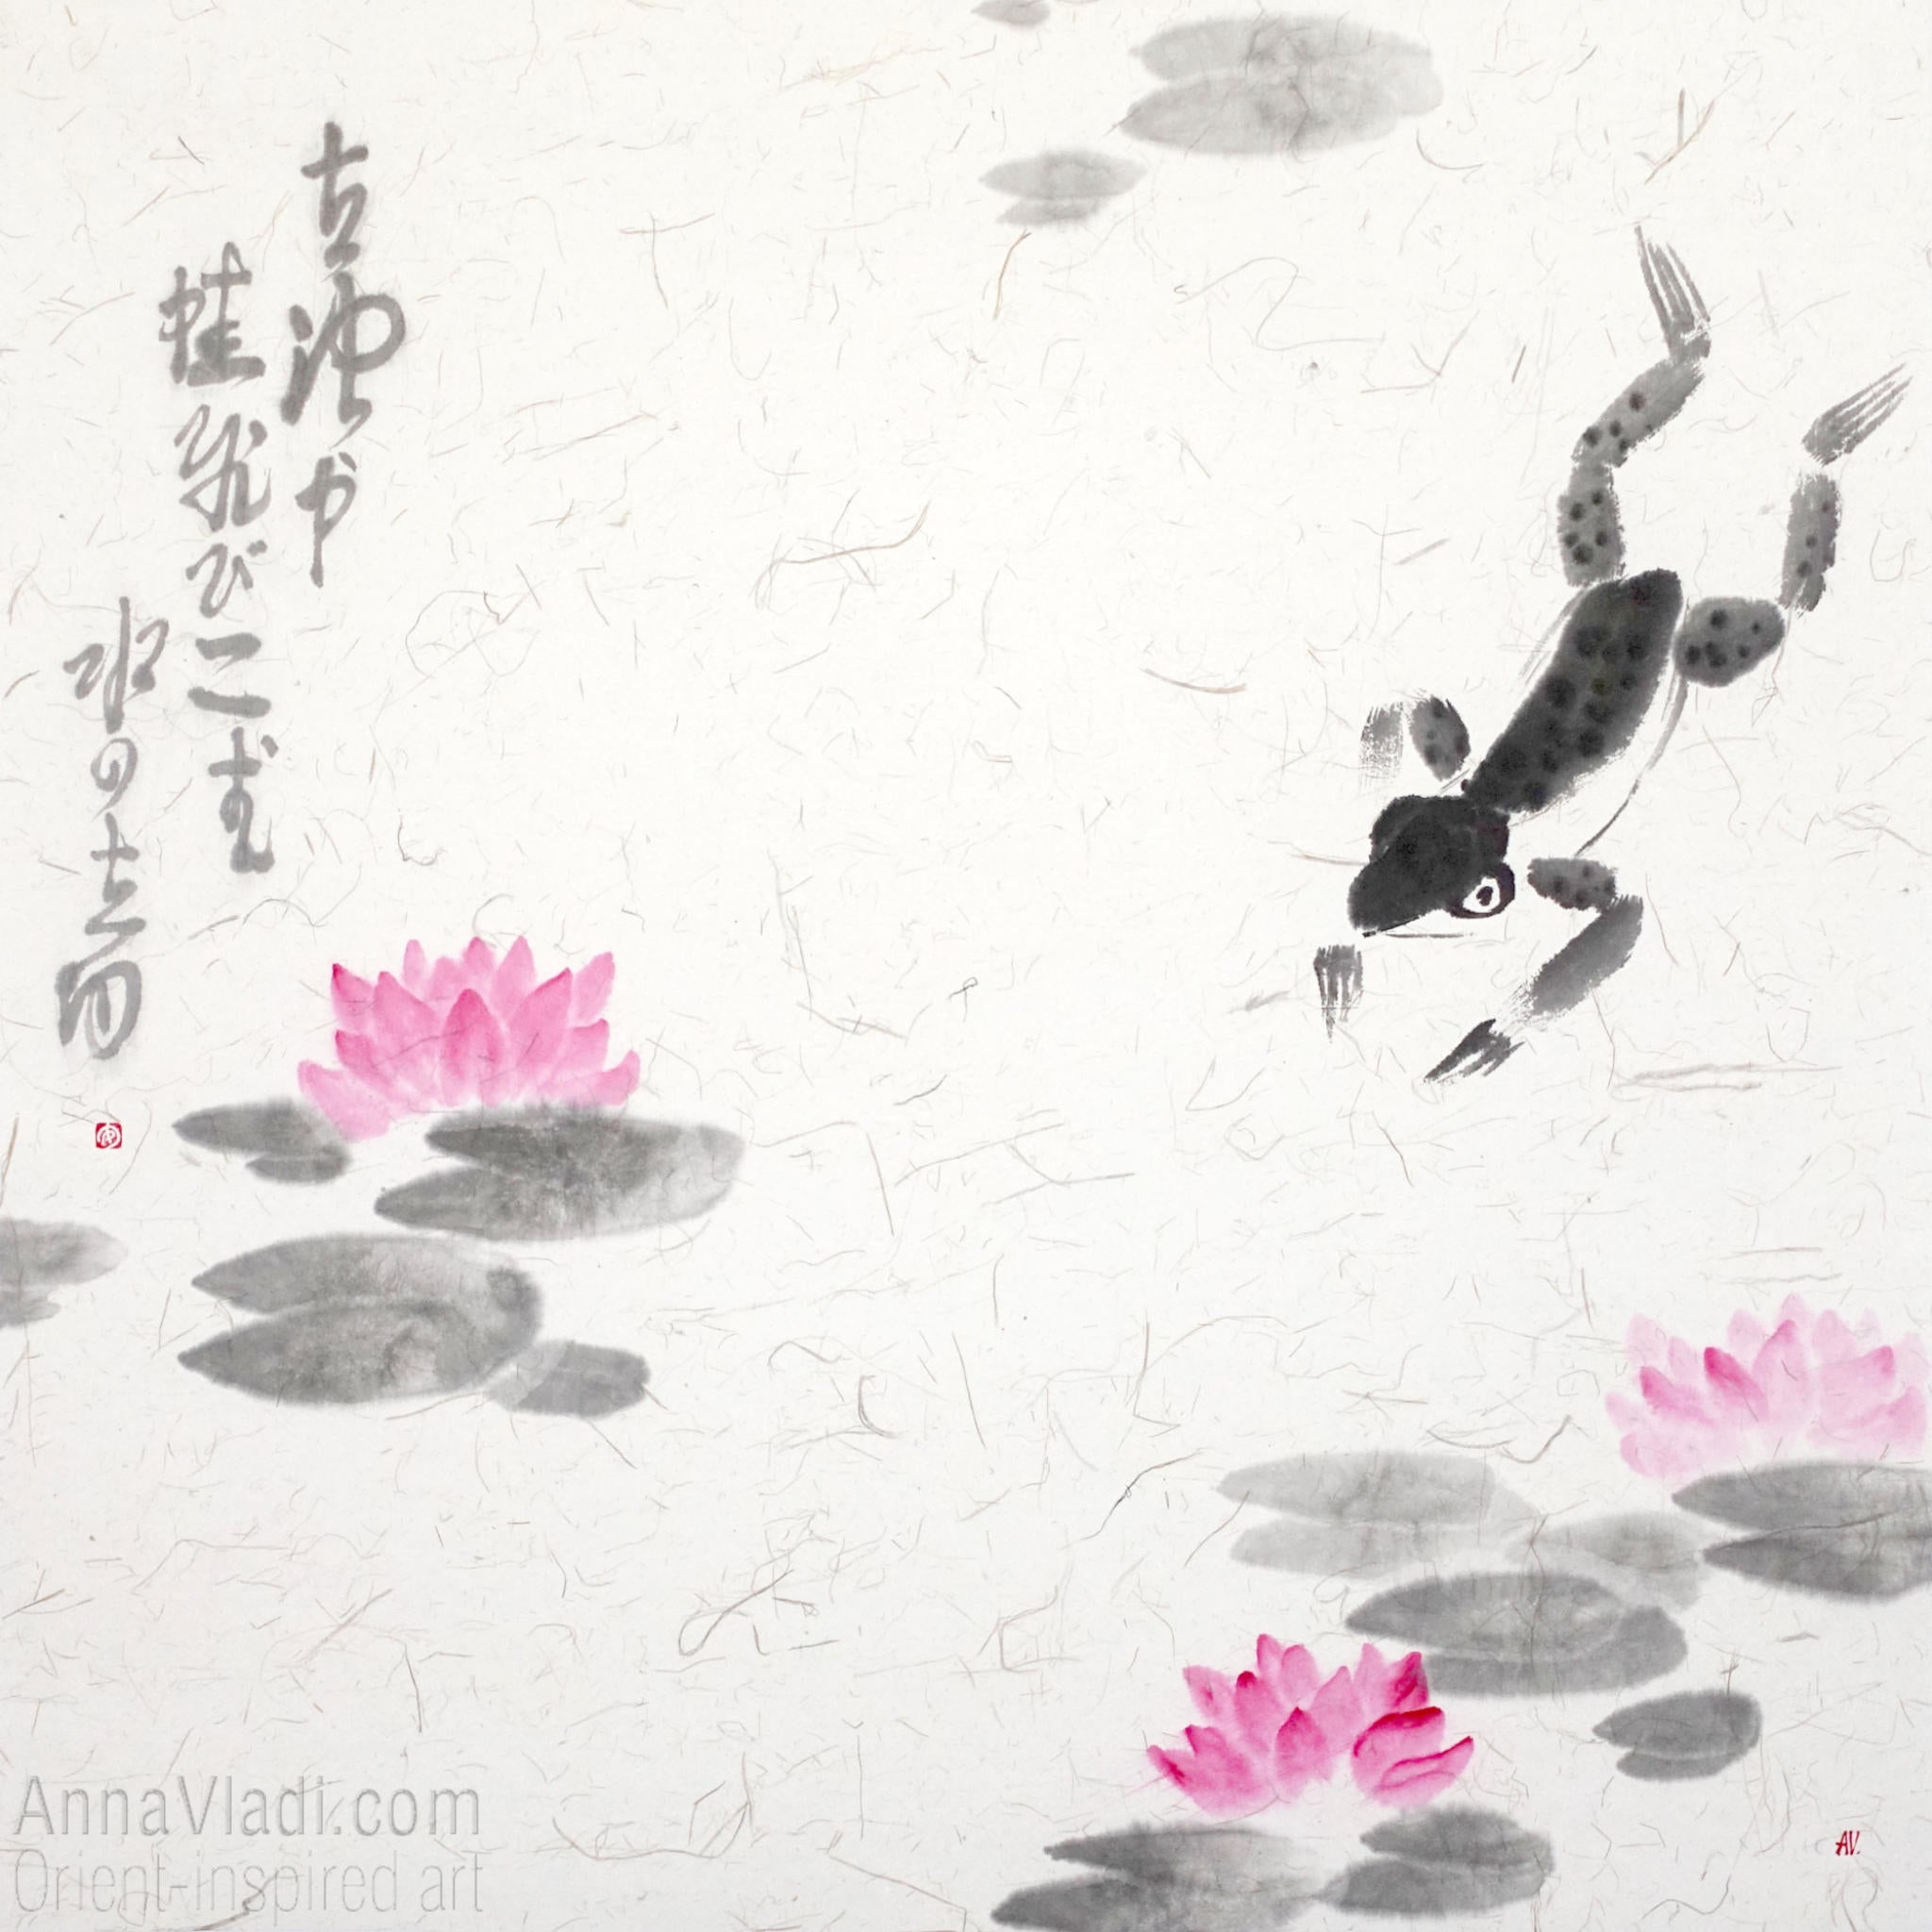 古池や
蛙飛びこむ
水の音
AnnaVladi.com
Orient-inspired art
AV.